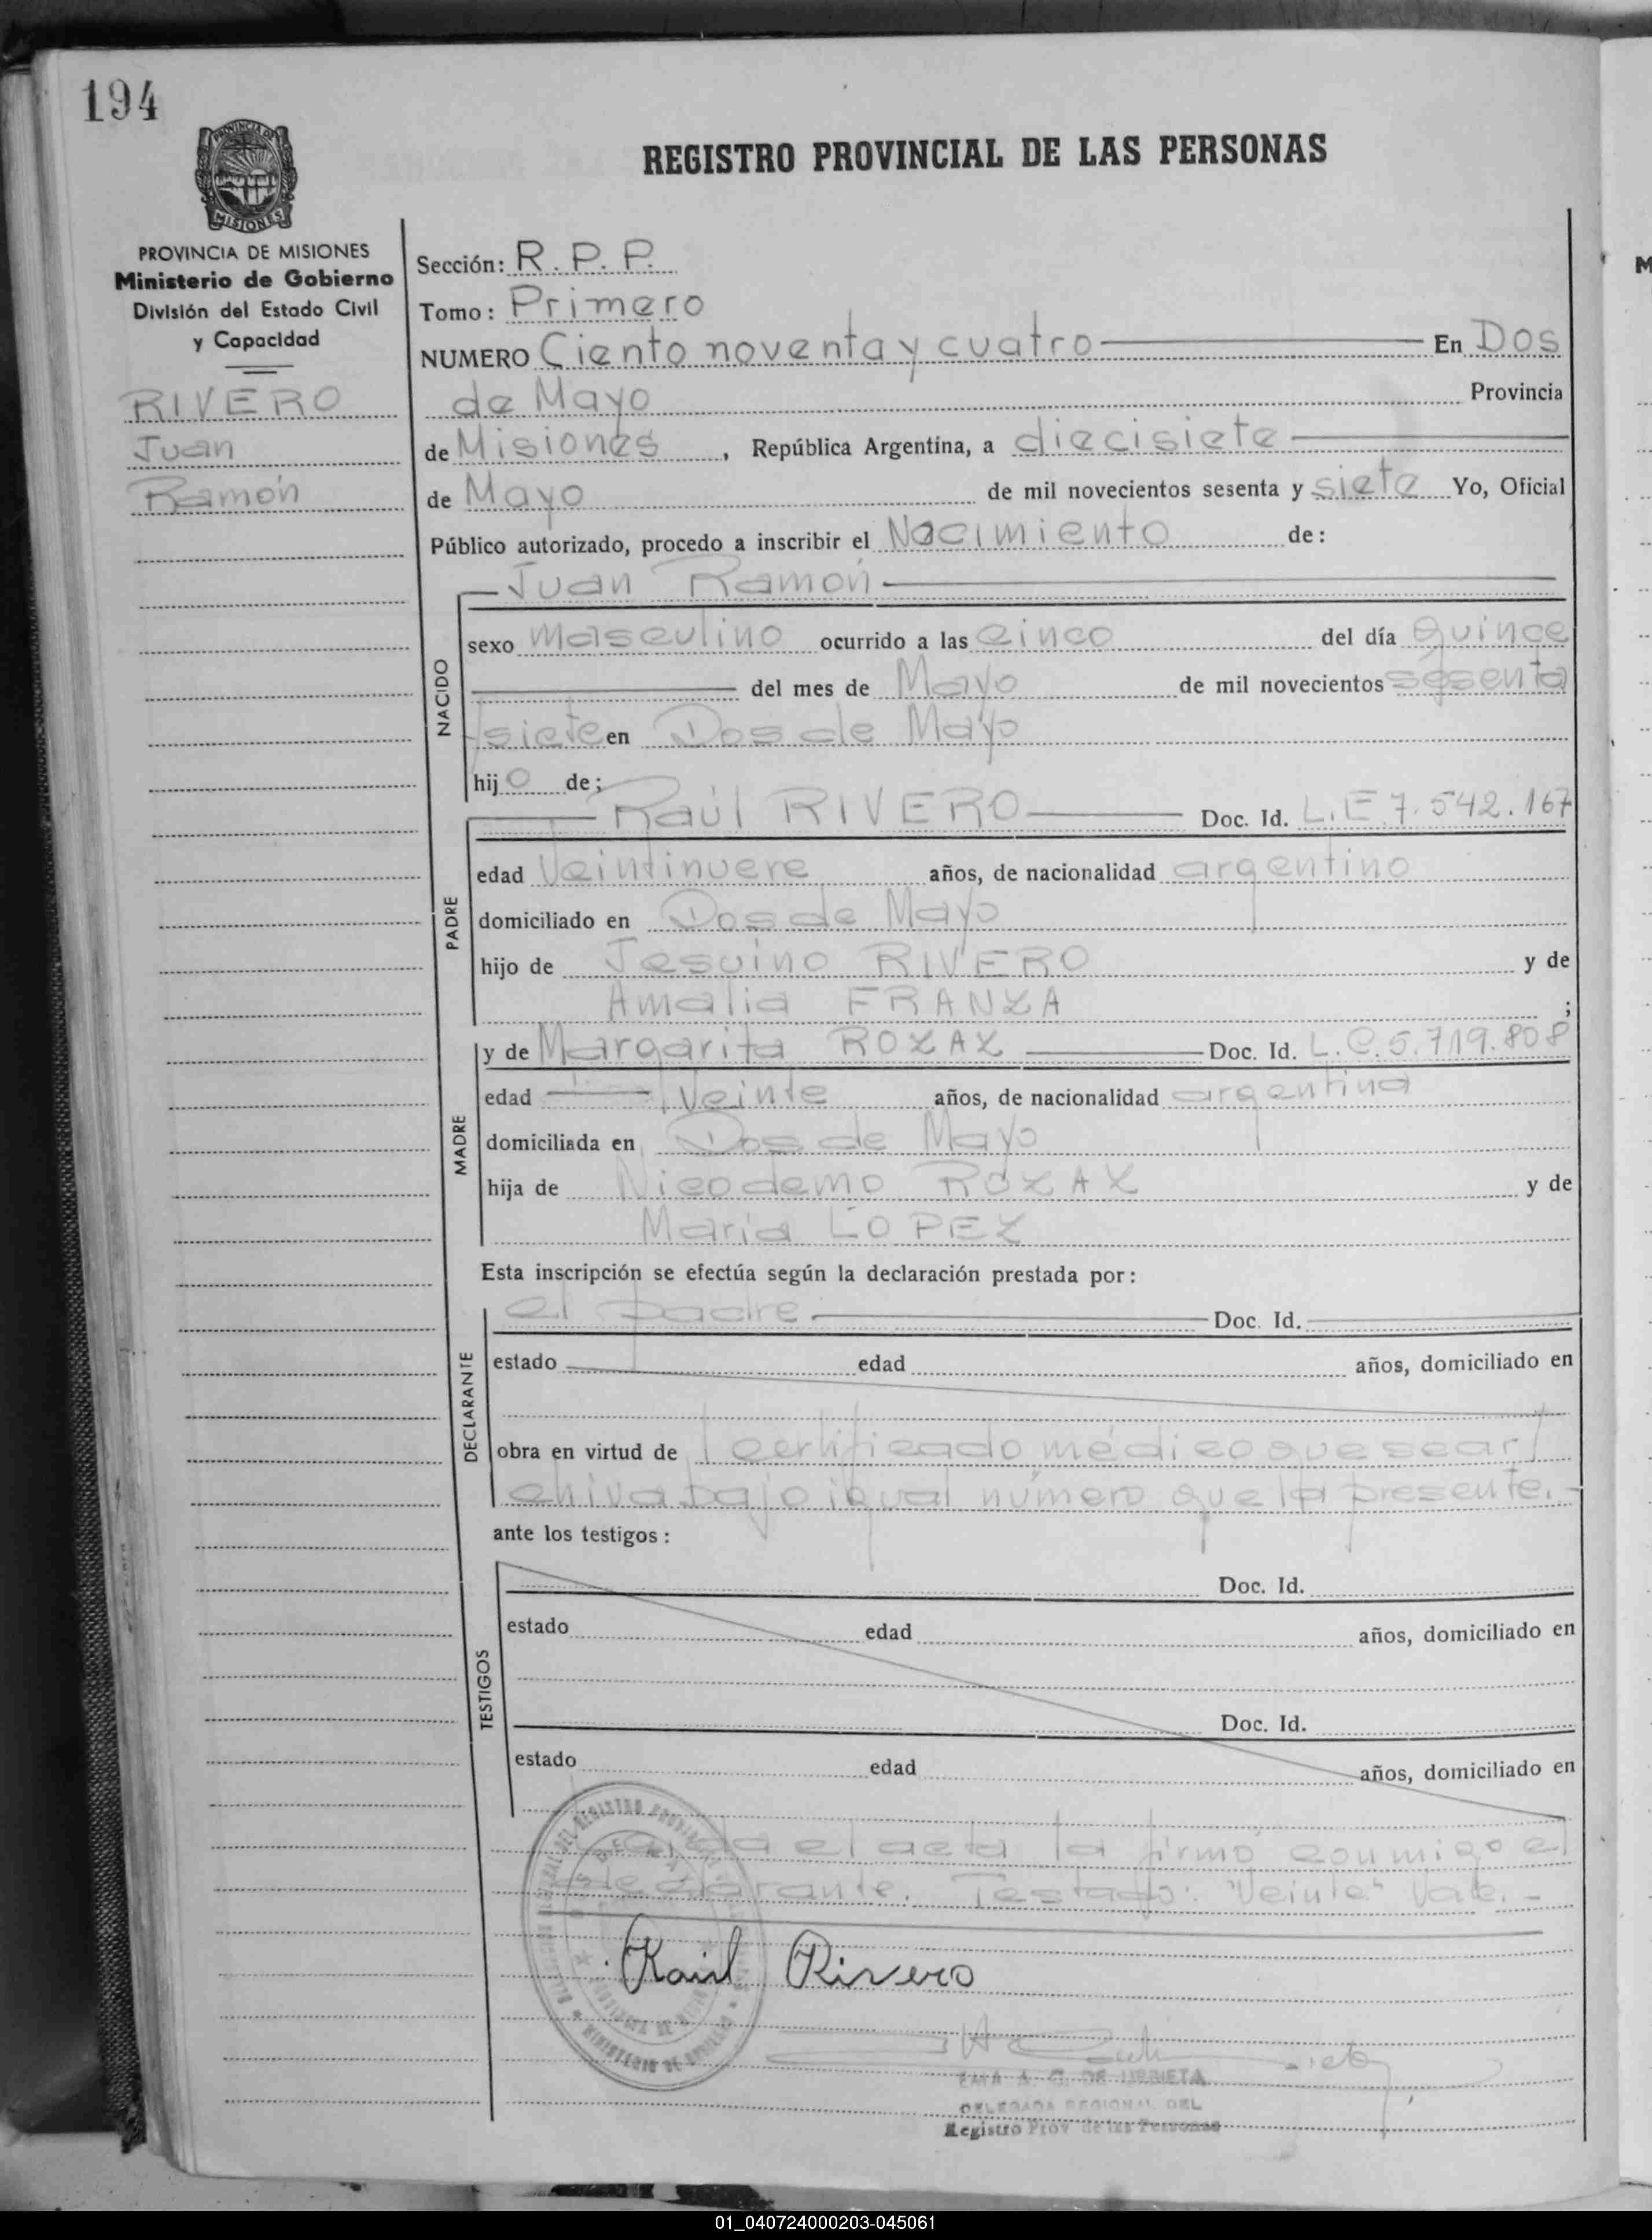 194
PROVINCIA DE
MISIONES
REGISTRO PROVINCIAL DE LAS PERSONAS
PROVINCIA DE MISIONES
Ministerio de Gobierno
División del Estado Civil
y Capacidad
RIVERO
Juan
Ramón
Sección: R. P. P.
Tomo: Primero
NUMERO Ciento noventa y cuatro En Dos
de Mayo Provincia
de Misiones, República Argentina, a diecisiete
de Mayo de mil novecientos sesenta y siete Yo, Oficial
Público autorizado, procedo a inscribir el Nacimiento de:
NACIDO
Juan Ramón
sexo masculino ocurrido a las cinco del día quince
del mes de Mayo de mil novecientos sesenta
y siete en Dos de Mayo
hijo de;
PADRE
Raúl RIVERO Doc. Id. L.E 7.542.167
edad Veintinueve años, de nacionalidad argentino
domiciliado en Dos de Mayo
hijo de Jesuino RIVERO y de
Amalia FRANZA ;
MADRE
y de Margarita ROZAZ Doc. Id. L.C.5.719.808
edad Veinte años, de nacionalidad argentina
domiciliada en Dos de Mayo
hija de Nicodemo ROZAZ y de
María LOPEZ
Esta inscripción se efectúa según la declaración prestada por:
DECLARANTE
el padre Doc. Id.
estado edad años, domiciliado en
obra en virtud de certificado médico que se ar/
chiva bajo igual número que la presente.-
ante los testigos:
TESTIGOS
Doc. Id.
estado edad años, domiciliado en
Doc. Id.
estado edad años, domiciliado en
el acta la firmó conmigo el
declarante. Testado: "Veinte" Vale.-
Raúl Rivero
DE URRIETA
DELEGADA REGIONAL DEL
Registro Prov de las Personas
01_040724000203-045061